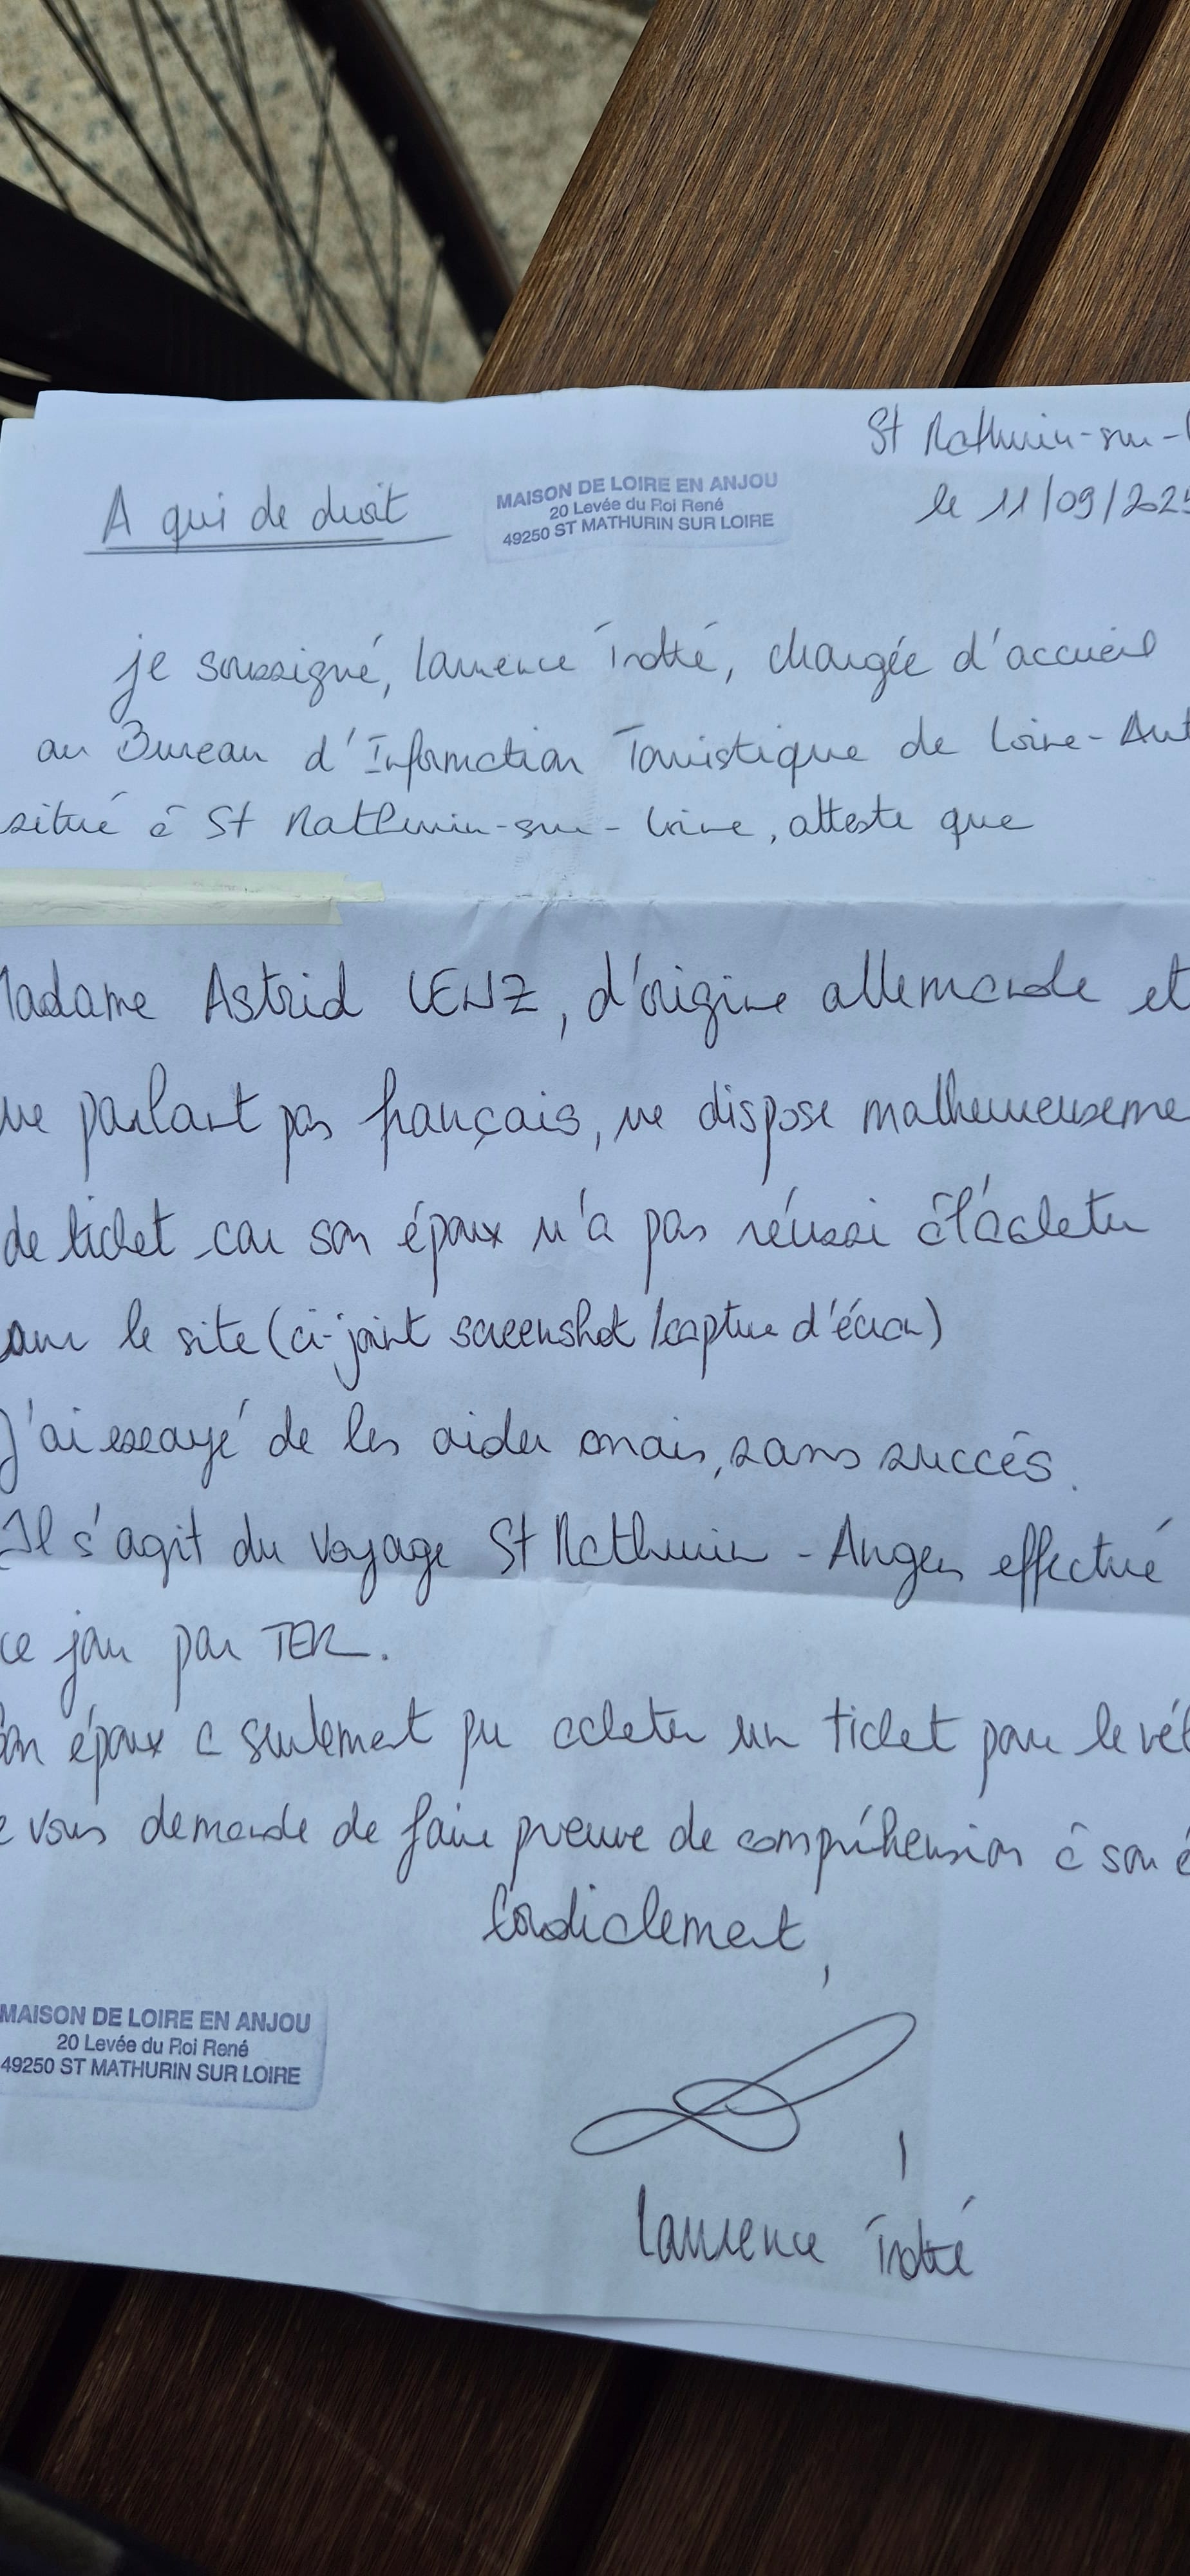 St Mathurin-sur-L
le 11/09/2025
A qui de droit
MAISON DE LOIRE EN ANJOU
20 Levée du Roi René
49250 ST MATHURIN SUR LOIRE
je soussigné, Laurence chargée d'accueil
au Bureau d'Information Touristique de Loire-Aut
situé à St Mathurin-sur-Loire, atteste que
Madame Astrid LENZ, d'origine allemande et
ne parlant pas français, ne dispose malheureuseme
de ticket car son époux n'a pas réussi à l'acheter
sur le site (ci-joint screenshot / capture d'écran)
J'ai essayé de les aider mais, sans succès.
Il s'agit du voyage St Mathurin - Angers effectué
ce jour par TER.
Son époux a seulement pu acheter un ticket pour le vél
e vous demande de faire preuve de compréhension à son é
Cordialement,
MAISON DE LOIRE EN ANJOU
20 Levée du Roi René
49250 ST MATHURIN SUR LOIRE
Laurence